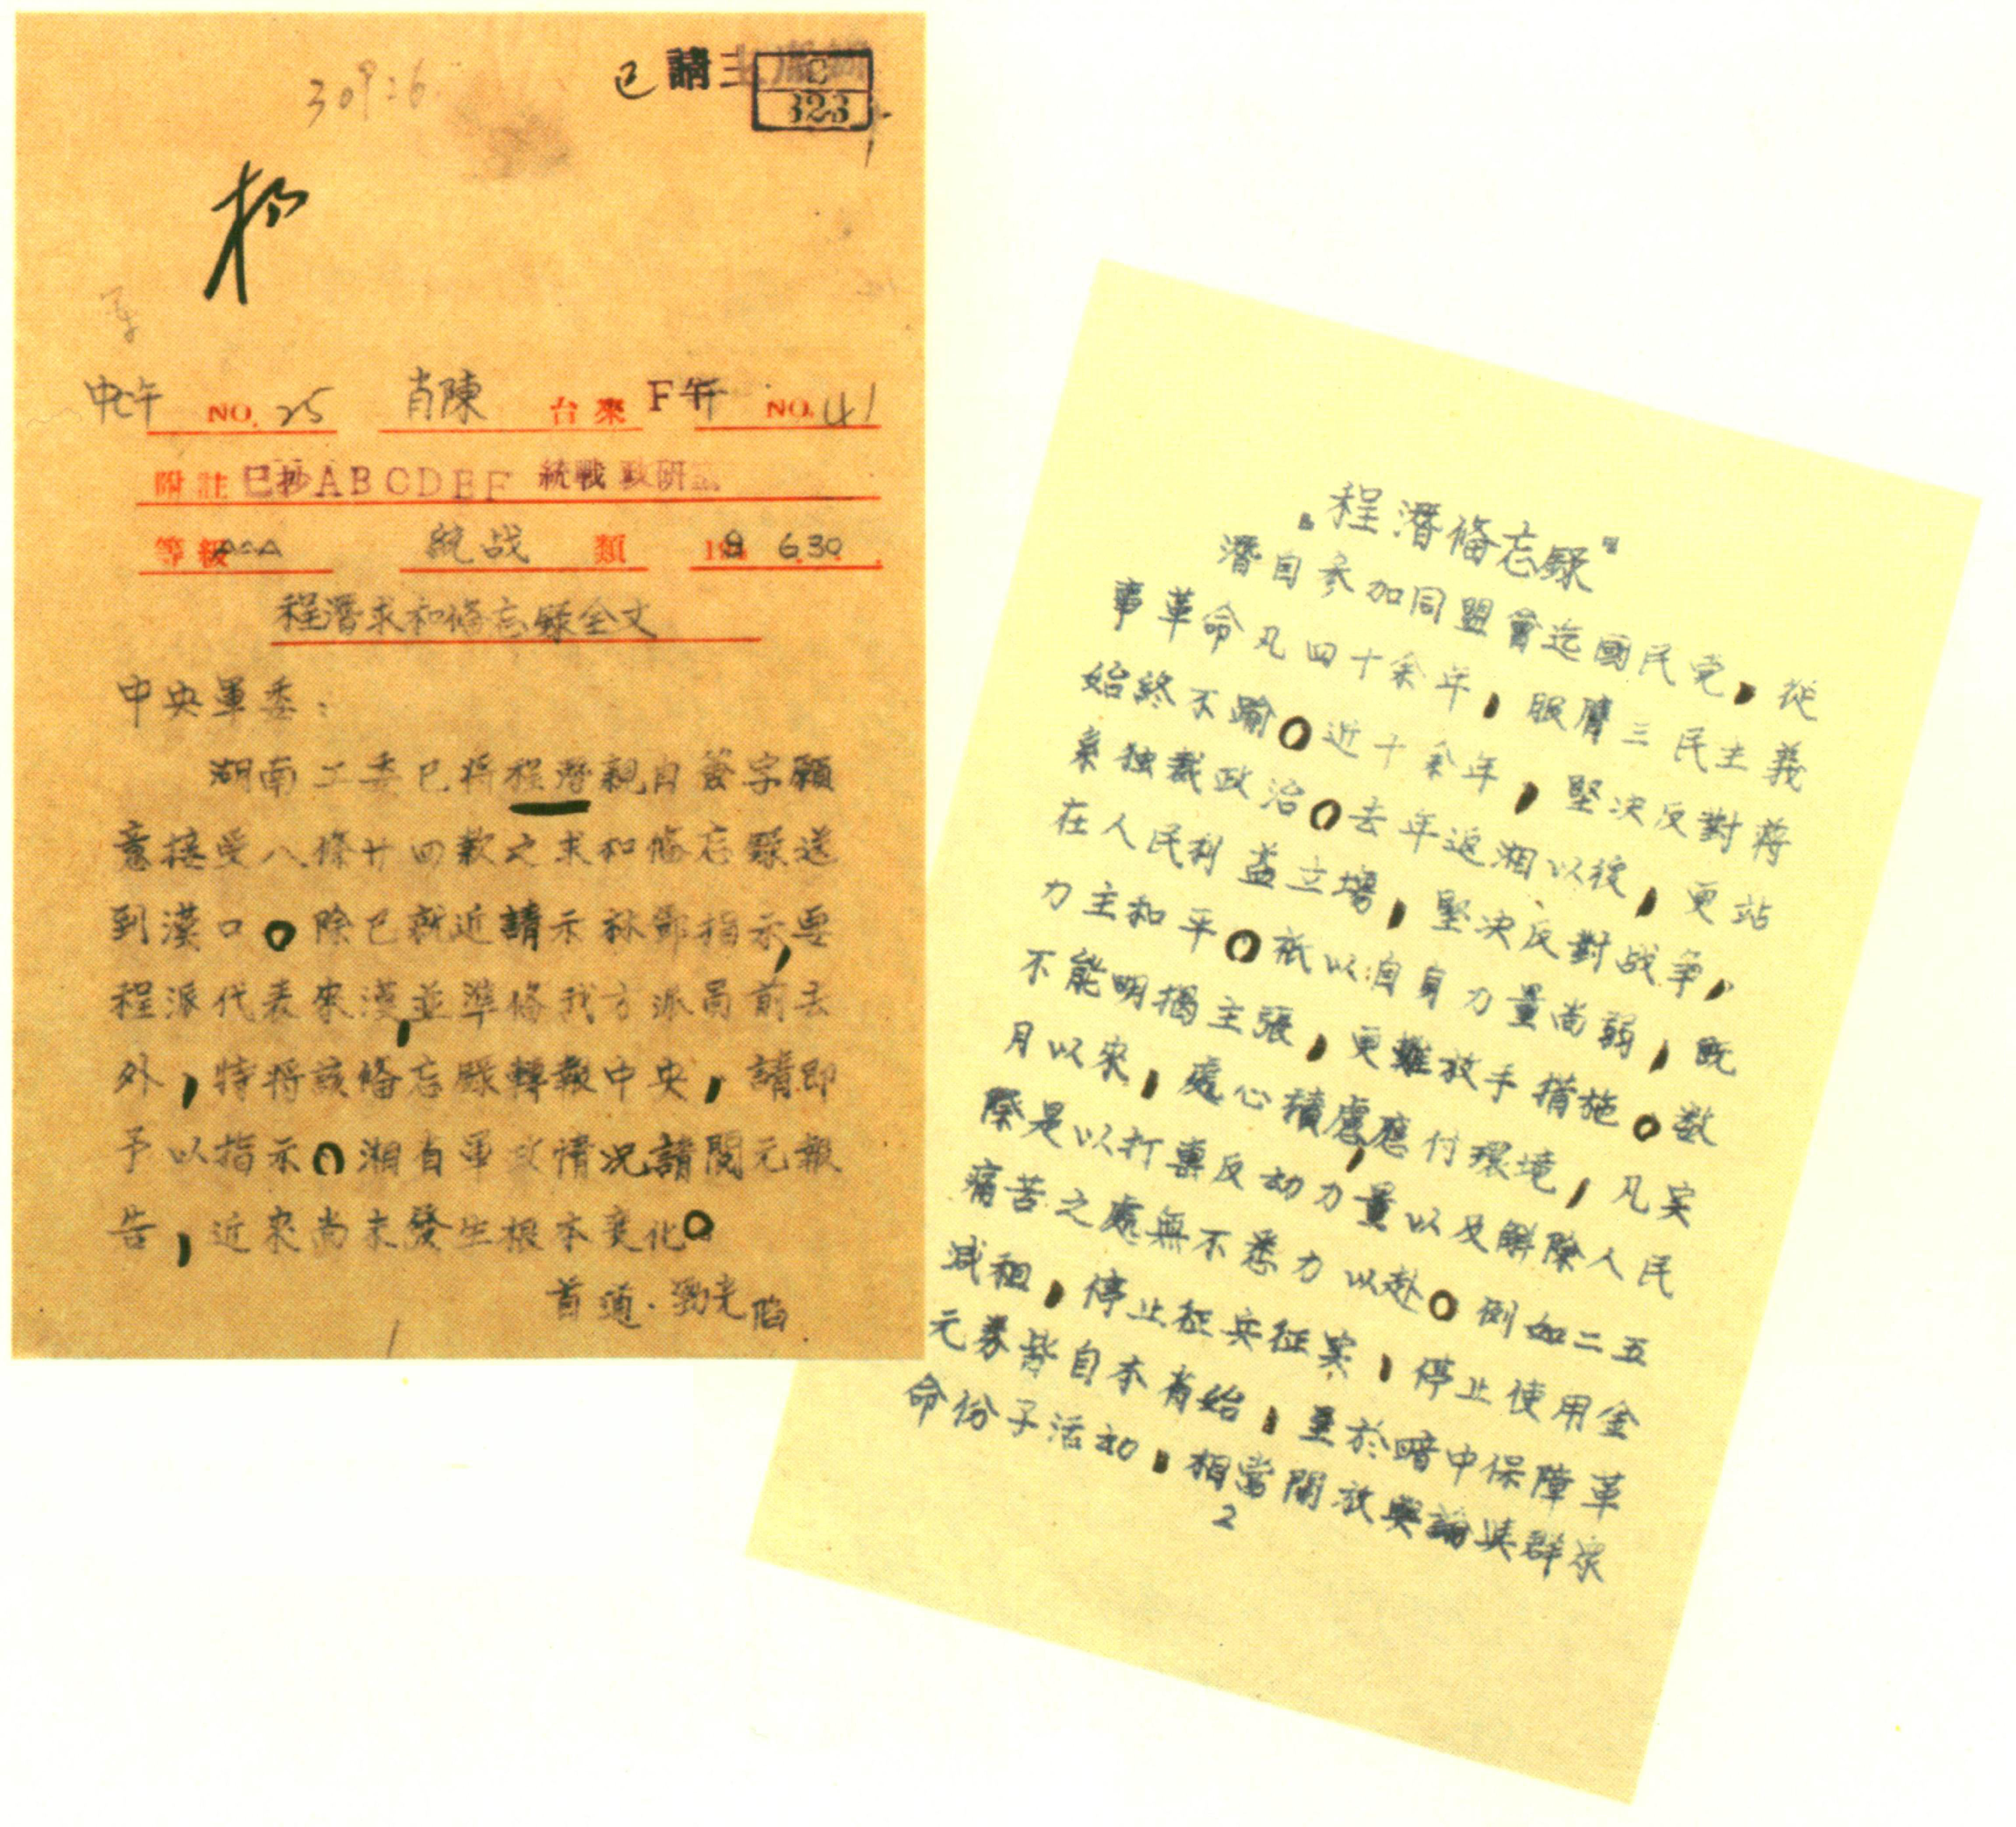 309:6
已請主
C
323
中午 NO. 25 肖陳 台來 F午 NO. 41
附註 已抄ABCDEF 統戰 政研室
等級AAA 統战 類 19 6.30
程潛求和俻忘録全文
中央軍委：
湖南工委已将程潛親自簽字願
意接受八條廿四款之求和俻忘録送
到漢口。除已就近請示林鄧指示，要
程派代表來漢，並準俻我方派員前去
外，特将該俻忘録轉報中央，請即
予以指示。湘省軍政情况請閱元報
告，近來尚未發生根本变化。
首道·勁光陷
1
“程潛俻忘録”
潛自參加同盟會迄國民党，從
事革命凡四十余年，服膺三民主義
始終不踰。近十余年，堅决反對蒋
系独裁政治。去年返湘以後，更站
在人民利益立場，堅决反對战争，
力主和平。祇以自身力量尚弱，既
不能明揭主張，更難放手措施。数
月以來，處心積慮，應付環境，凡实
際是以打擊反动力量以及解除人民
痛苦之處無不悉力以赴。例如二五
減租，停止征兵征实，停止使用金
元券皆自本省始，至於暗中保障革
命份子活动，相當開放輿論與群衆
2